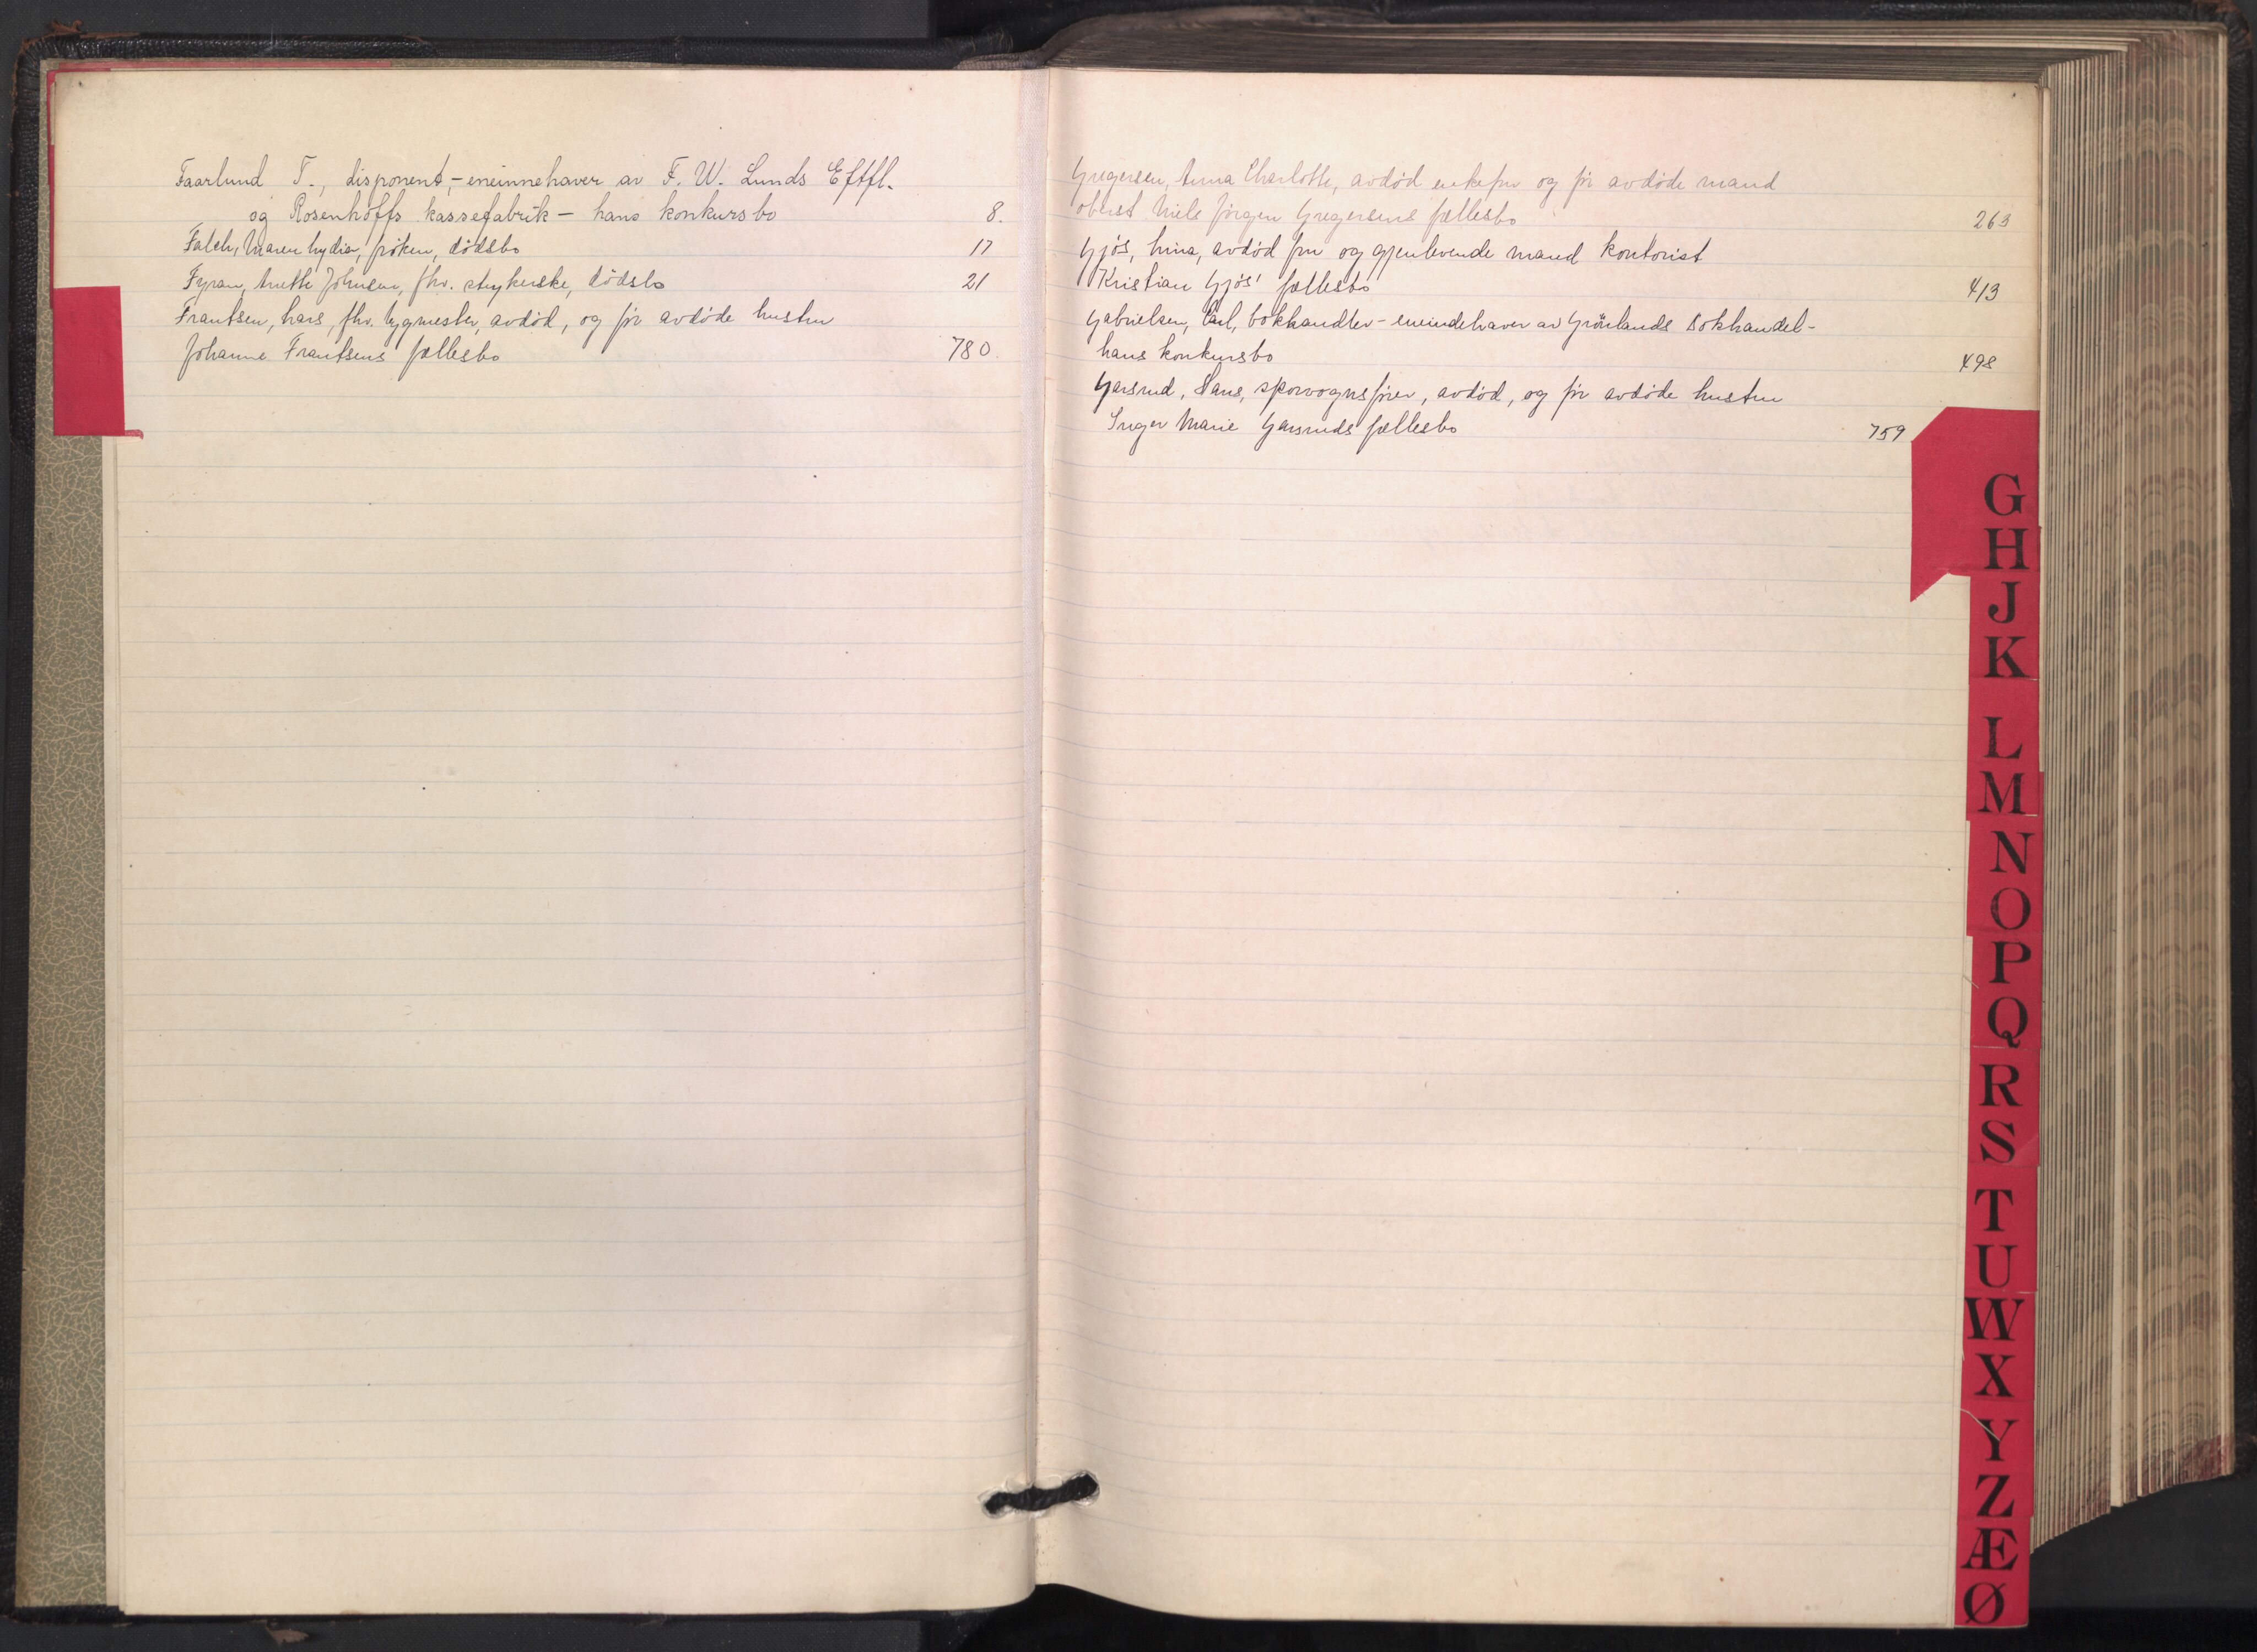 Faarlund T., disponent, - eneinnehaver av F. W. Lunds Eftfl.
og Rosenhoffs kassefabrik – hans konkursbo 8.
Falch, Maren Lydia, frøken, dødsbo 17
Fyran, Anette Johnsen, fhv. strykerske, dødsbo 21
Frantsen, Lars, fhv. bygmester, avdød, og før avdøde hustru
Johanne Frantsens fællesbo 780.
Gregersen, Anna Charlotte, avdød enkefru og før avdøde mand
oberst Niels Jørgen Gregersens fællesbo 263
Gjøs, Lina, avdød fru og gjenlevende mand kontorist
Kristian Gjøs' fællesbo 413
Gabrielsen, Carl, bokhandler - eneindehaver av Grønlands Bokhandel -
hans konkursbo 498
Garsrud, Hans, sporvognsfører, avdød, og før avdøde hustru
Inger Marie Garsruds fællesbo 759
G
H
J
K
L
M
N
O
P
Q
R
S
T
U
W
X
Y
Z
Æ
Ø